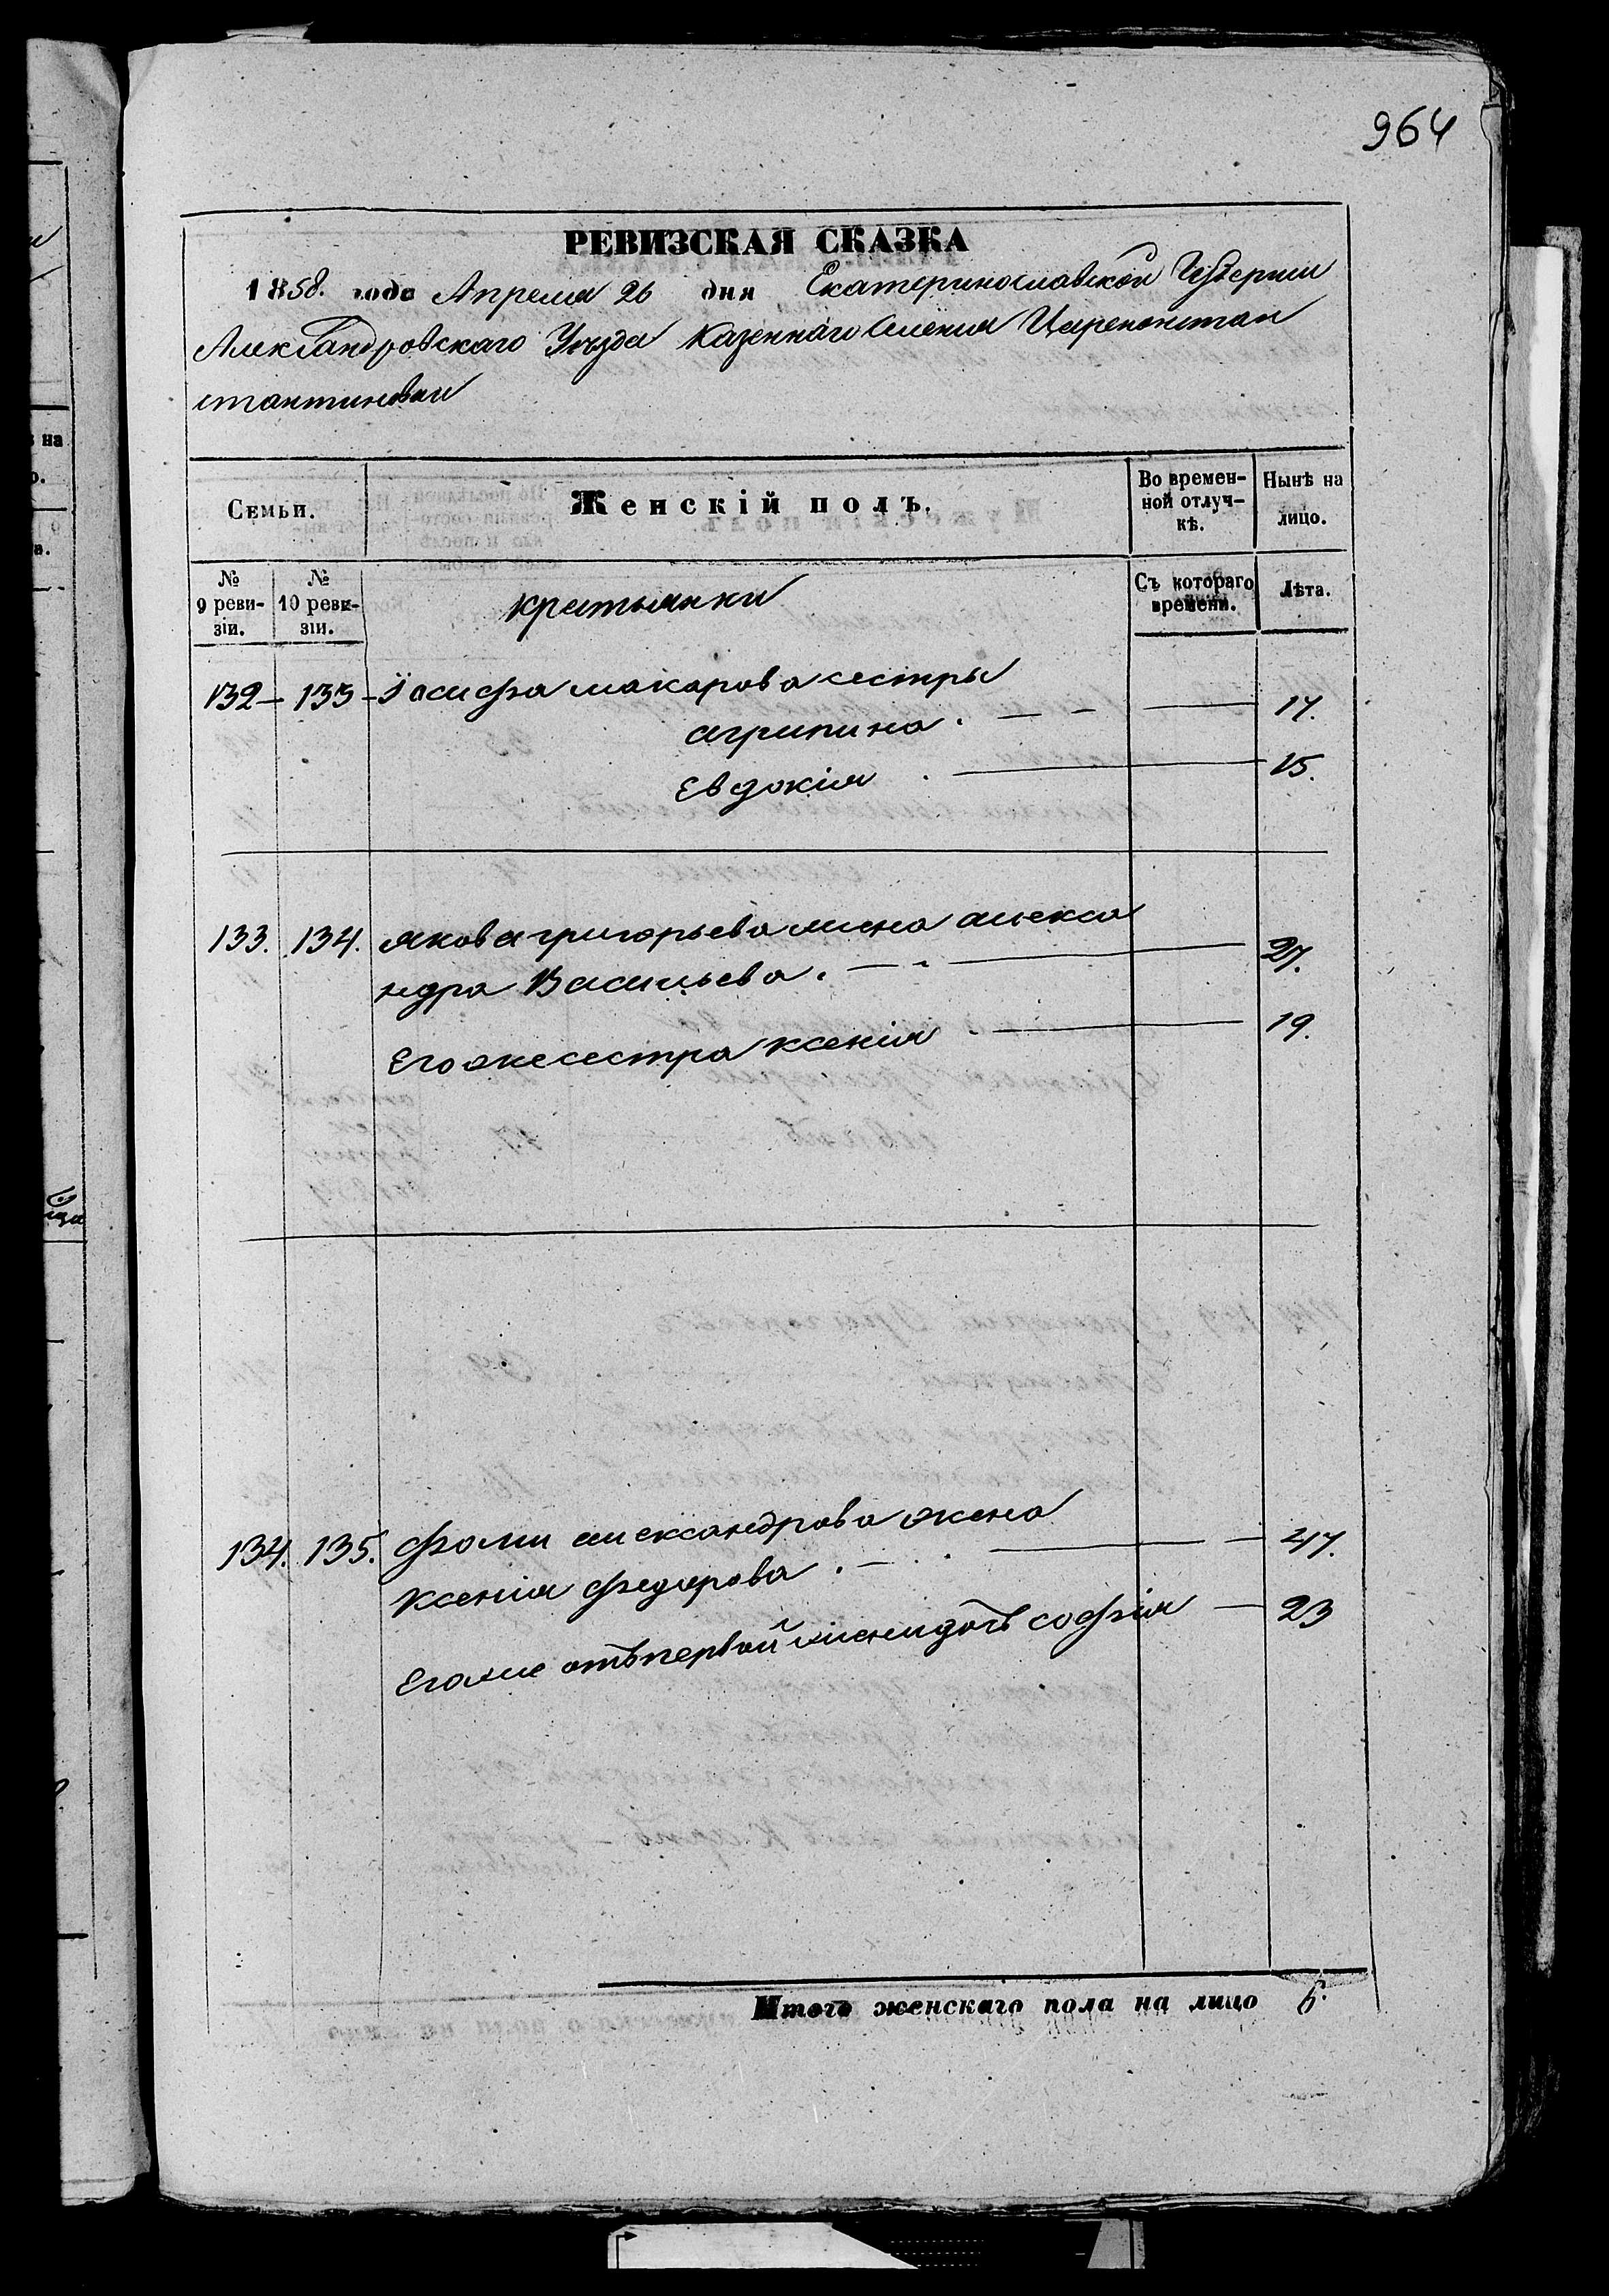 964
РЕВИЗСКАЯ СКАЗКА
1858. года Апреля 26 дня Екатеринославской Губернии
Александровскаго Уѣзда Казеннаго Селения Цареконстан
стантиновки
Семьи.
Женскій полъ.
Во времен-
ной отлуч-
кѣ.
Нынѣ на
лицо.
№
9 реви-
зіи.
№
10 реви-
зіи.
крестьянки
Съ котораго
времени.
Лѣта.
132 – 133 – Іосифа макарова сестры
агрипина. — – — 17.
Евдокія . — 15.
133. 134. якова григорьева жена алекса
ндра Васильева. — 27.
Егоже сестра ксенія . — 19.
134. 135. фоми александрова жена
Ксенія федорова . — 47.
Егоже отъ первой жени дочь софія — 23
Итого женскаго пола на лицо 6.